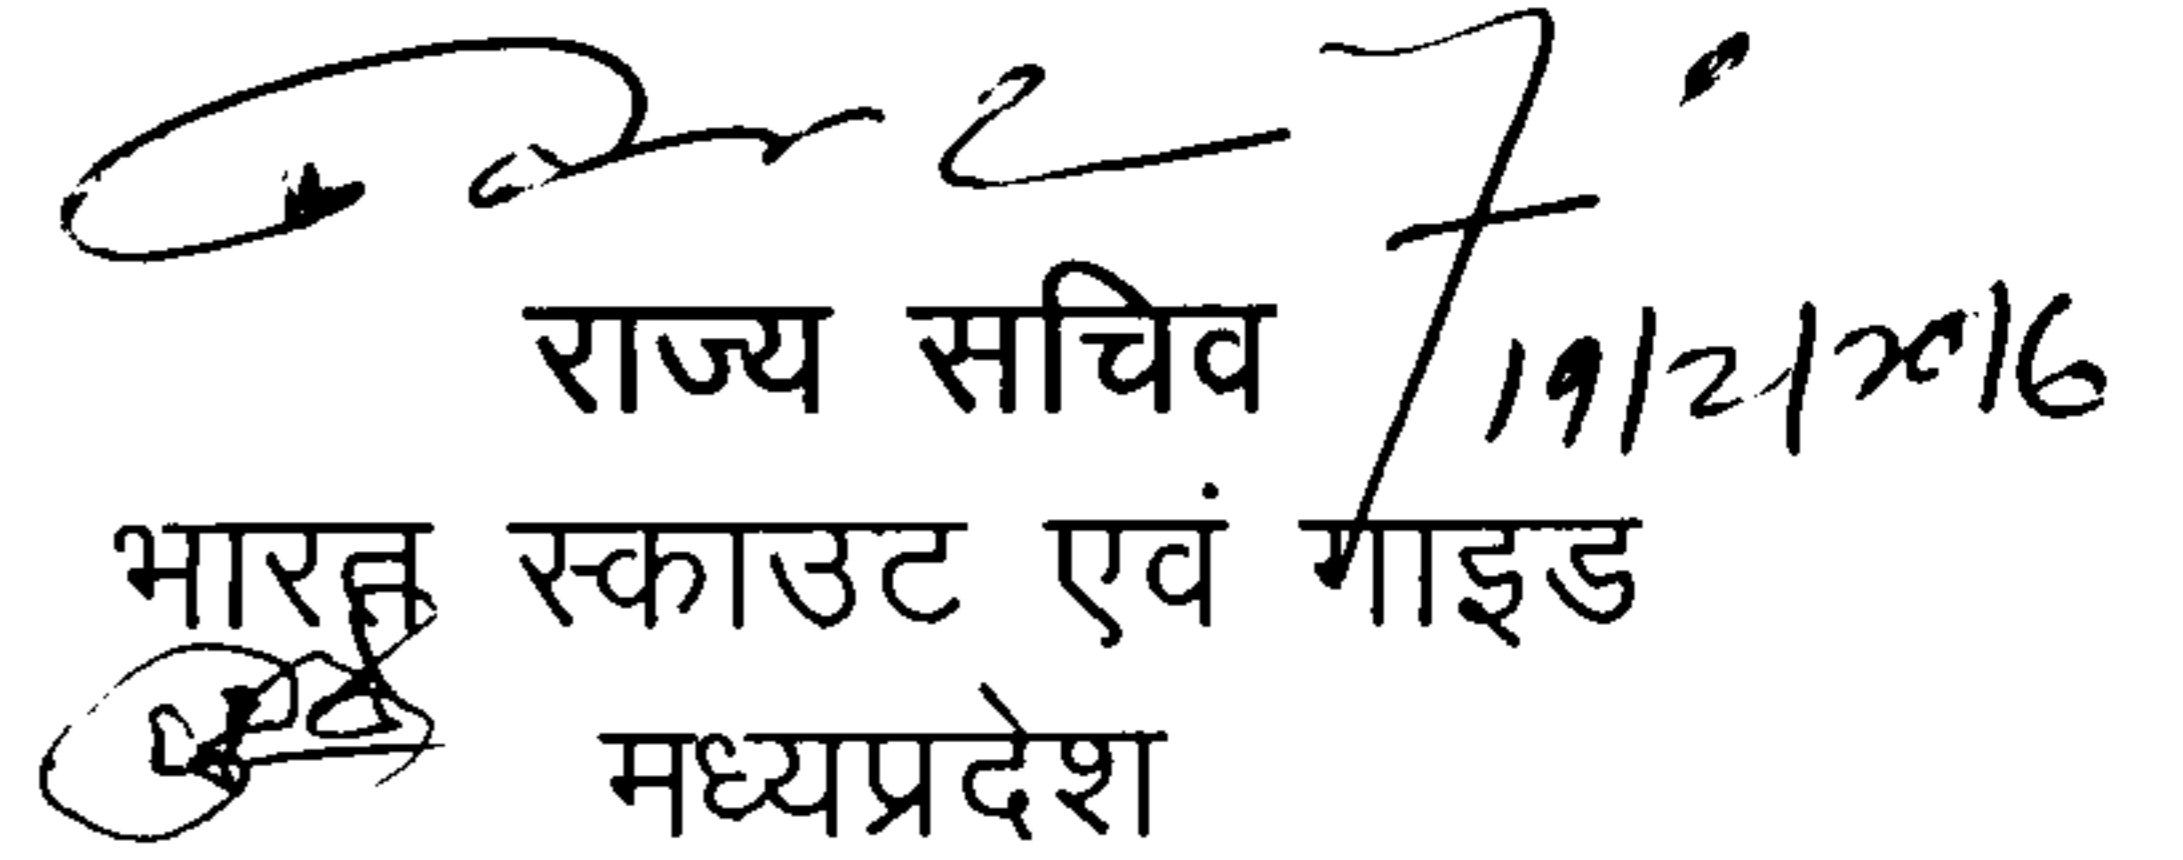 राज्य सचिव
19/2/2016
भारत स्काउट एवं गाइड
मध्यप्रदेश